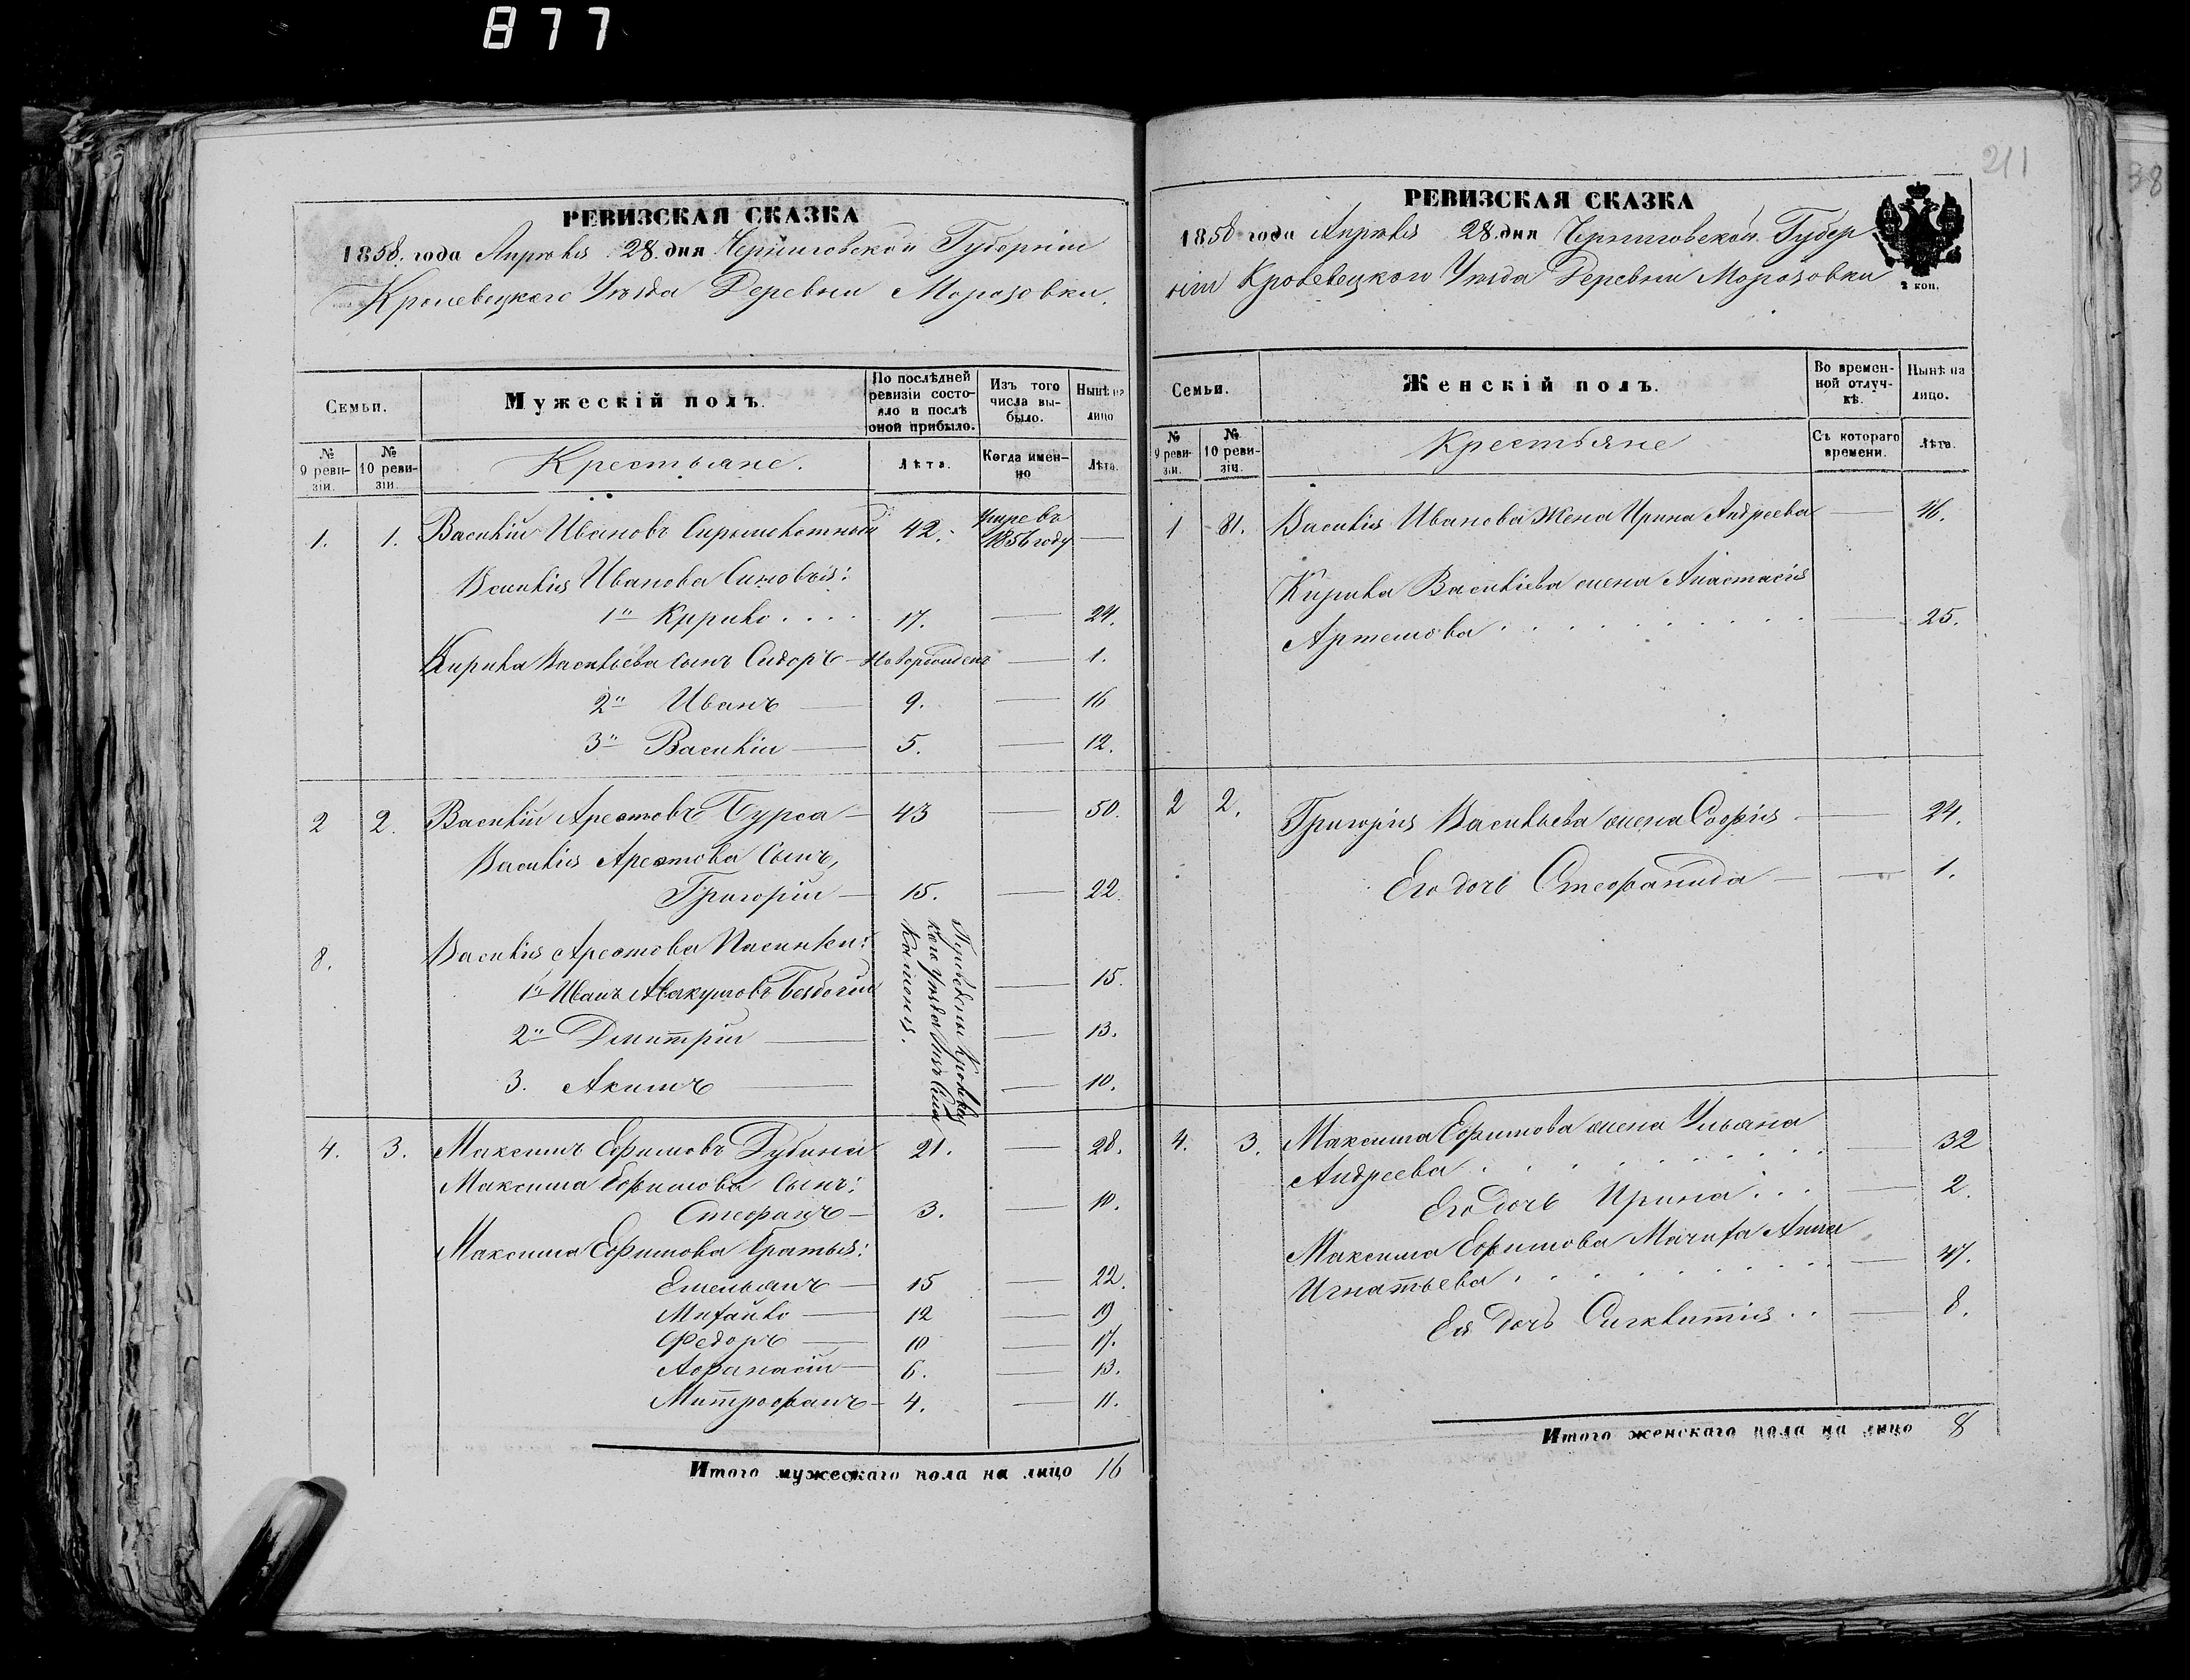 877
РЕВИЗСКАЯ СКАЗКА
1858. года Апрѣля 28. дня Черниговской Губерніи
Кролевецкаго Уѣзда Деревни Морозовки.
Семьи.
Мужескій полъ.
По послѣдней ревизіи состояло и послѣ оной прибыло.
Изъ того числа выбыло.
Нынѣ на лицо
№ 9 ревизіи.
№ 10 ревизіи.
Крестьяне.
Лѣта.
Когда именно
Лѣта.
1. 1. Василій Ивановъ 42. Умре въ 1856 году —
Василія Иванова Сыновья:
1й Кррило . . . . 17. — 24.
Кирила Васильева сынъ Сидоръ — Новорожденъ — 1.
2й Иванъ — 9. — 16
3й Василій — 5. — 12.
2 2. Василій Арестовъ Бурса — 43 — 50.
Василія Арестова Сынъ,
Григорій — 15. — 22.
8. Василія Арестова Пасынки:
1й Иванъ Авакумовъ — 15.
2й Дмитрій — — 13.
3. Акимъ — — 10.
Переведены Кролевец
каго Уѣзда изъ Села
4. 3. Максимъ Ефимовъ Дубина 21. — 28.
Максима Ефимова Сынъ:
Стефанъ — 3. — 10.
Максима Ефимова братья:
Емельянъ — 15 — 22.
Михайло — 12 — 19
Федоръ — 10 — 17.
Афанасій — 6. — 13.
Митрофанъ — 4. — 11.
Итого мужескаго пола на лицо 16
211
РЕВИЗСКАЯ СКАЗКА
1858 года Апрѣля 28. дня Черниговской Губер
ніи Кролевецкого Уѣзда Деревни Морозовки
2 коп.
Семьи.
Женскій полъ.
Во временной отлучкѣ.
Нынѣ на лицо.
№ 9 ревизіи.
№ 10 ревизіи.
Крестьяне
Съ котораго времени.
Лѣта.
1 81. Василія Иванова Жена Ирина Андреева — 46.
Кирила Василіева жена Анастасія
Артемова . . . . . . . . . . — 25.
2 2. Григорія Васильева жена Софія — 24.
Его дочь Стефанида — — 1.
4. 3. Максима Ефимова жена Ульяна
Андреева . . . . . . . . . — 32
Его дочь Ирина . . . — 2.
Максима Ефимова Мачиха Анна
Игнатьева . . . . . . . . — 47.
Ея дочь Синклитія . . — 8.
Итого женскаго пола на лицо 8
38